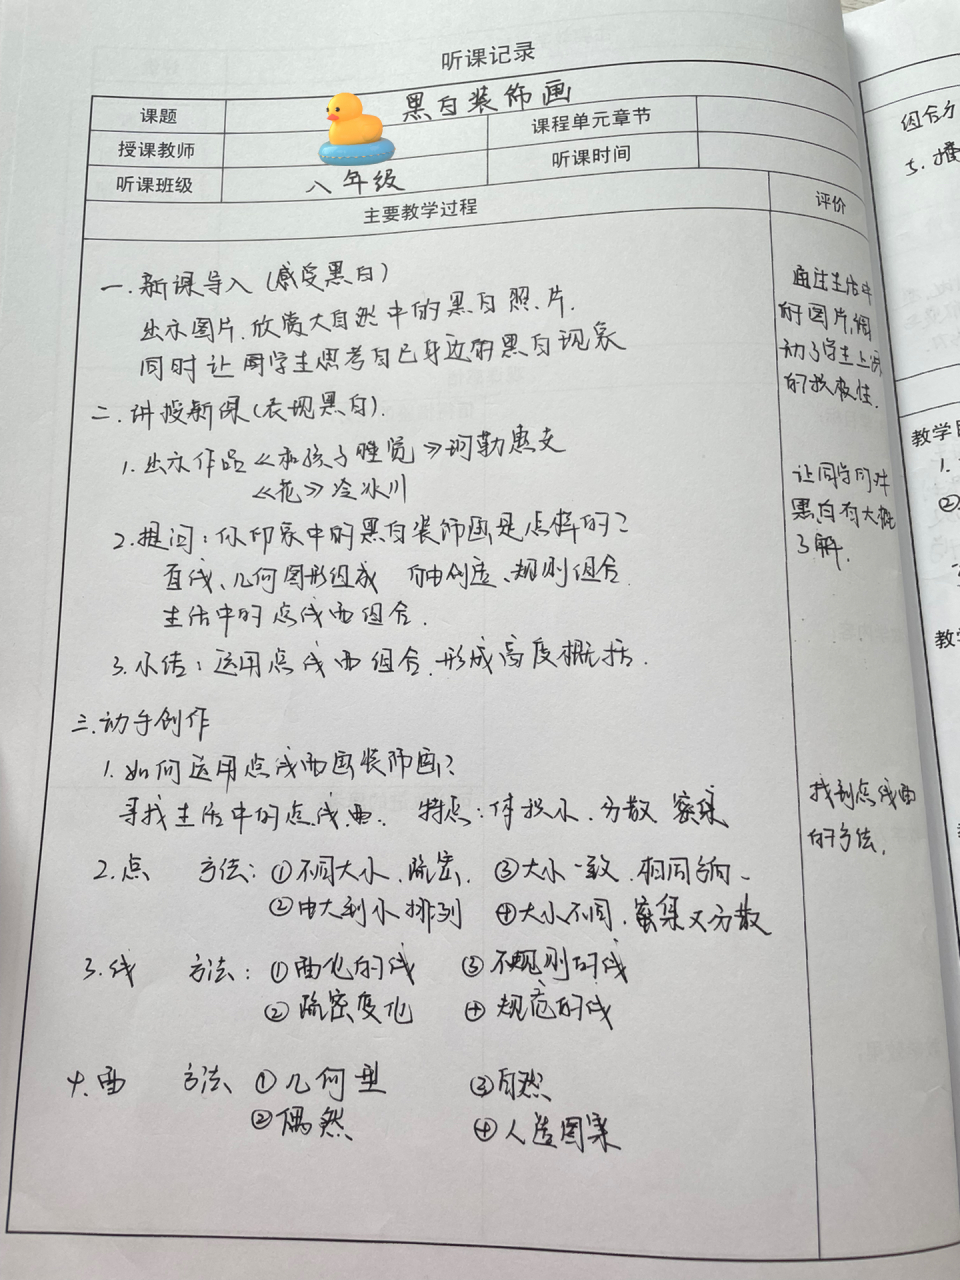 听课记录
课题 黑白装饰画 课程单元章节
授课教师 听课时间
听课班级 八年级
主要教学过程 评价
一.新课导入(感受黑白)
出示图片.欣赏大自然中的黑白照片.
同时让同学生思考自己身边的黑白现象
通过生活中
的图片,调
动了学生上课
的积极性.
二.讲授新课(表现黑白).
1.出示作品《和孩子睡觉》珂勒惠支
《花》冷冰川
2.提问:你印象中的黑白装饰画是怎样的?
直线、几何图形组成 自由创造、规则组合
生活中的点线面组合.
3.小结:运用点线面组合.形成高度概括.
让同学们对
黑白有大概
了解.
三.动手创作
1.如何运用点线面画装饰画?
寻找生活中的点线面. 特点:体积小.分散 密集
2.点 方法:①不同大小.疏密. ③大小一致.相同方向.
②由大到小排列 ④大小不同.密集又分散
3.线 方法:①曲化的线 ③不规则的线
②疏密变化 ④规范的线
4.面 方法 ①几何型 ③自然
②偶然 ④人造图案
找到点线面
的方法.
组合方
5.
教学目
1.
②
教学